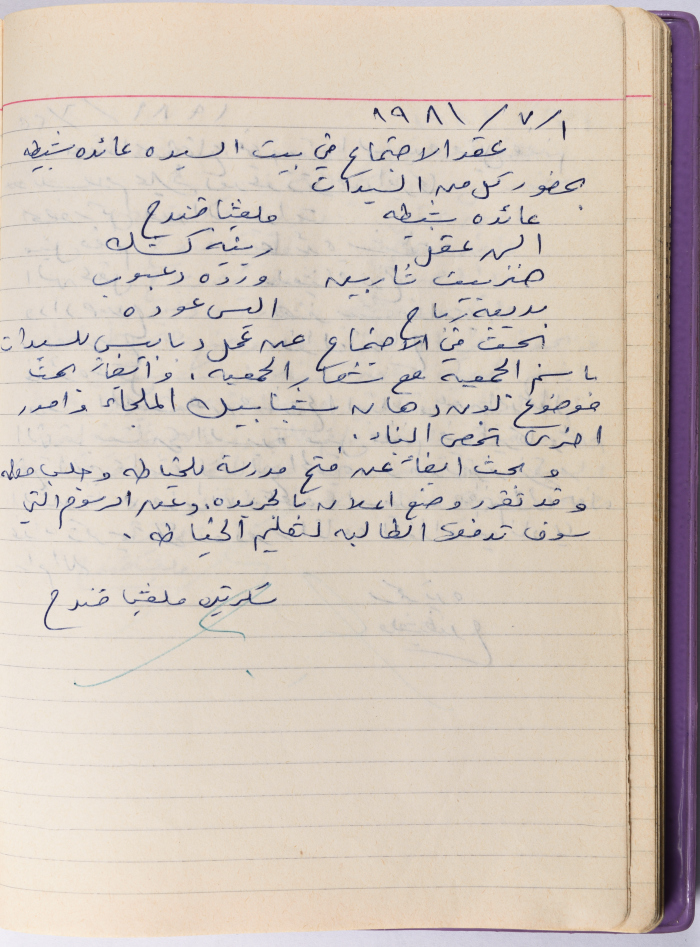 ١/ ٧/ ١٩٨١
عقد الاجتماع في بيت السيده عائده شبيطه
بحضور كل من السيدات
عائده شبيطه ملفينا قندح
السن عقل دينيه كتتك
هنرييت شاربين ورده دعبوب
بديعه رباح اليس عوده
بحث في الاجتماع عن عمل دبابيس للسيدات
باسم الجمعية مع شعار الجمعيه. وايضاً بحث
موضوع لون دهان شبابيك الملجاء وامور
اخرى تخص البناء.
و بحث ايضاً عن فتح مدرسة للخياطه و جلب معلمه
وقد تقرر وضع اعلان بالجريده. وعن الرسوم التي
سوف تدفعها الطالبه لتعليم الخياطه.
سكرتيرة ملفينا قندح